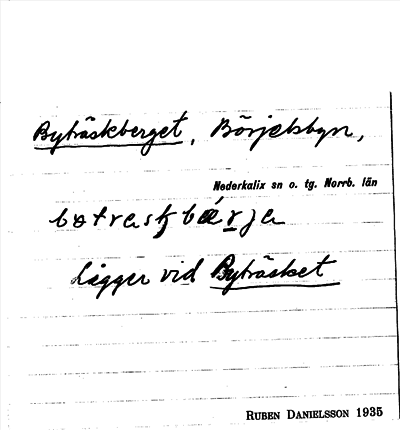 Byträskberget, Börjelsbyn,
Nederkalix sn o. tg. Norrb. län
Ligger vid Byträsket
RUBEN DANIELSSON 1935